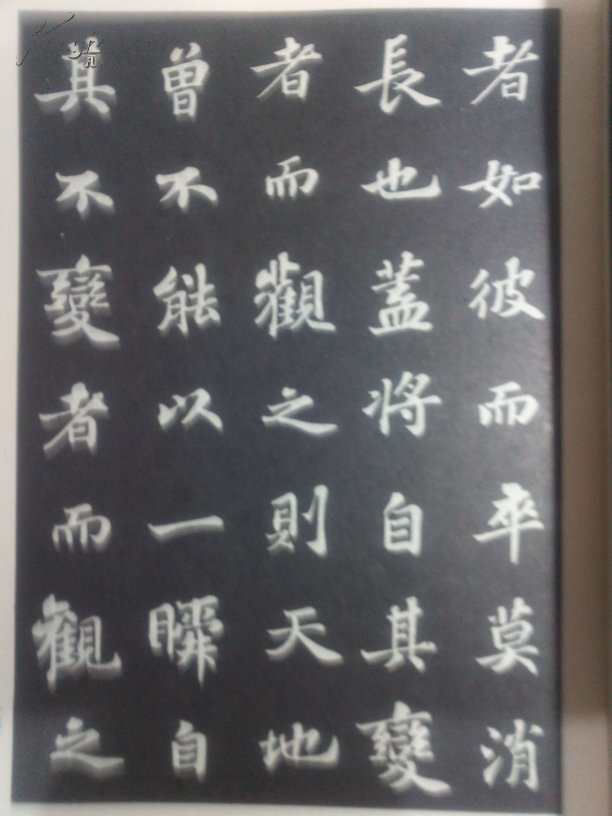 者如彼而卒莫消
長也蓋將自其變
者而觀之則天地
曾不能以一瞬自
其不變者而觀之